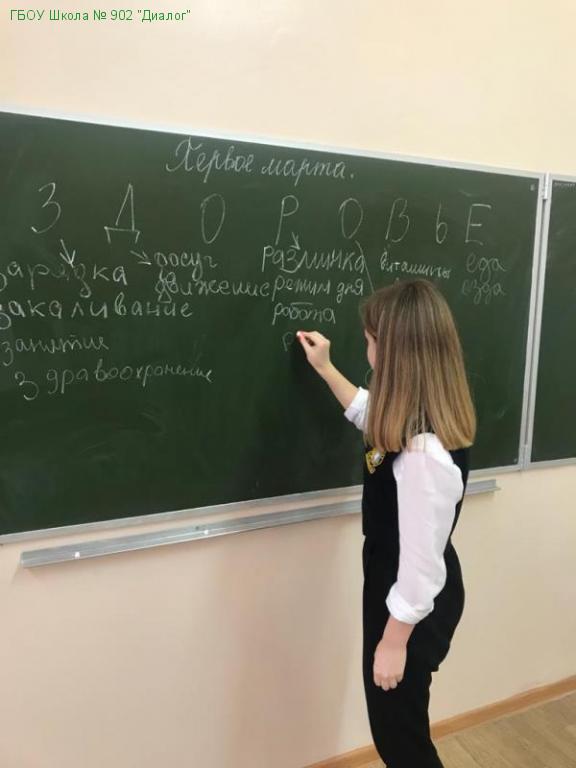 ГБОУ Школа № 902 "Диалог"
Первое марта.
З Д О Р О В Ь Е
зарядка досуг разминка витамины еда
закаливание движение режим дня езда
занятие работа
здравоохранение р